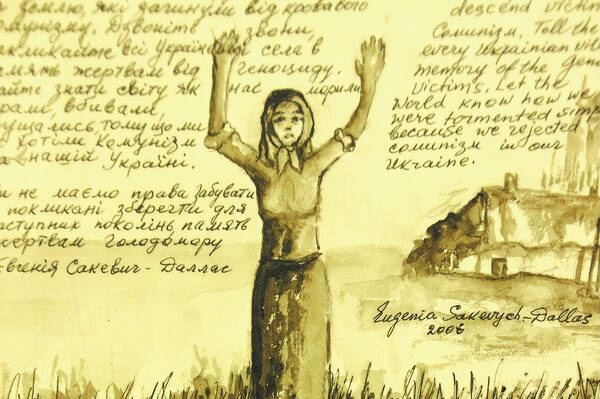 землю, які загинули від кровавого
комунізму. Дзвоніть звони,
закликайте всі Українські села в
память жертвам від геноциду.
Дайте знати світу як нас морили
вбивали,
тому що ми
хотіли комунізм
в нашій Україні.
не маємо права забувати
покликані зберегти для
наступник поколінь память
жертвам Голодомору
Євгенія Сакевич-Даллас
descend victim
Comunizm. Toll the
every Ukrainian vill
memory of the gen
victims. Let the
World know how we
were tormented simp
because we rejected
comunizm in our
Ukraine.
Eugenia Sakevych-Dallas
2006